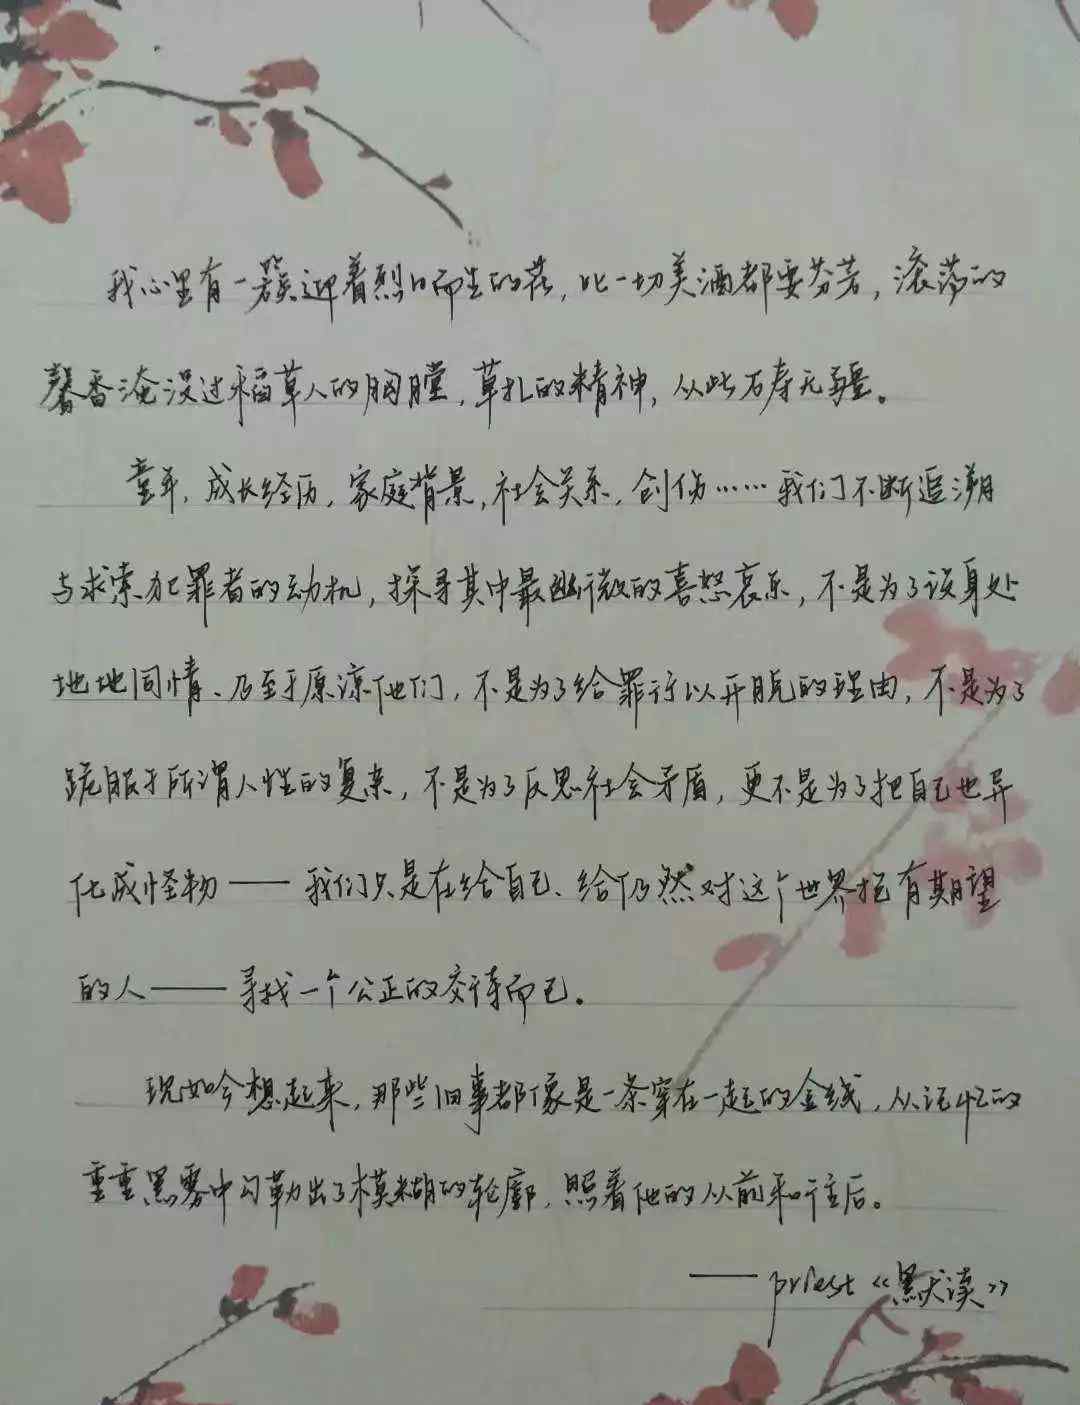 我心里有一簇迎着烈日而生的花，比一切美酒都要芬芳，滚荡的
馨香淹没过稻草人的胸膛，草扎的精神，从此万寿无疆。
童年，成长经历，家庭背景，社会关系，创伤……我们不断追溯
与求索犯罪者的动机，探寻其中最幽微的喜怒哀乐，不是为了设身处
地地同情、乃至于原谅他们，不是为了给罪行以开脱的理由，不是为了
跪服于所谓人性的复杂，不是为了反思社会矛盾，更不是为了把自己也异
化成怪物——我们只是在给自己、给仍然对这个世界抱有期望
的人——寻找一个公正的交待而已。
现如今想起来，那些旧事都像是一条穿在一起的金线，从记忆的
重重黑雾中勾勒出了模糊的轮廓，照着他的从前和往后。
——priest《默读》